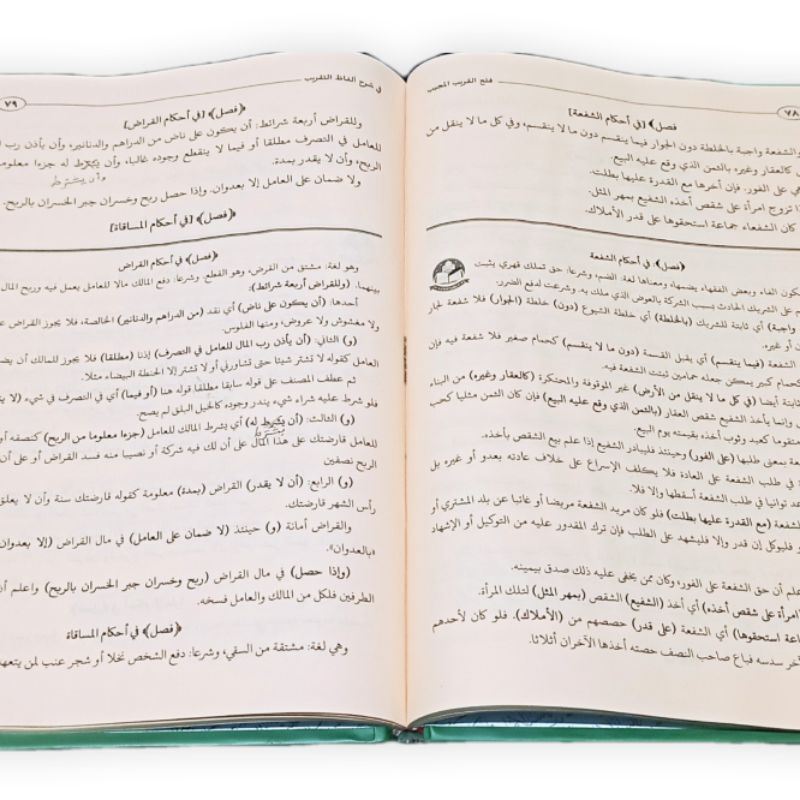 ٧٨
فتح القريب المجيب
فصل﴾ [في أحكام الشفعة]
والشفعة واجبة بالخلطة دون الجوار فيما ينقسم دون ما لا ينقسم، وفي كل ما لا ينقل من
كالعقار وغيره بالثمن الذي وقع عليه البيع.
هي على الفور. فإن أخرها مع القدرة عليها بطلت.
تزوج امرأة على شقص أخذه الشفيع بمهر المثل.
كان الشفعاء جماعة استحقوها على قدر الأملاك.
﴿فصل﴾: في أحكام الشفعة
الفاء وبعض الفقهاء يضمها، ومعناها لغة: الضم، وشرعا: حق تملك قهري يثبت
على الشريك الحادث بسبب الشركة بالعوض الذي ملك به. وشرعت لدفع الضرر.
واجبة) أي ثابتة للشريك (بالخلطة) أي خلطة الشيوع (دون) خلطة (الجوار) فلا شفعة لجار
أو غيره.
الشفعة (فيما ينقسم) أي يقبل القسمة (دون ما لا ينقسم) كحمام صغير فلا شفعة فيه فإن
كحمام كبير يمكن جعله حمامين ثبتت الشفعة فيه.
ثابتة أيضا (في كل ما لا ينقل من الأرض) غير الموقوفة والمحتكرة (كالعقار وغيره) من البناء
وإنما يأخذ الشفيع شقص العقار (بالثمن الذي وقع عليه البيع) فإن كان الثمن مثليا كحب
متقوما كعبد وثوب أخذه بقيمته يوم البيع.
بمعنى طلبها (على الفور) وحينئذ فليبادر الشفيع إذا علم بيع الشقص بأخذه.
في طلب الشفعة على العادة، فلا يكلف الإسراع على خلاف عادته بعدو أو غيره بل
توانيا في طلب الشفعة أسقطها وإلا فلا.
الشفعة (مع القدرة عليها بطلت) فلو كان مريد الشفعة مريضا أو غائبا عن بلد المشتري أو
فليوكل إن قدر وإلا فليشهد على الطلب فإن ترك المقدور عليه من التوكيل أو الإشهاد
أن حق الشفعة على الفور، وكان ممن يخفى عليه ذلك صدق بيمينه.
امرأة على شقص أخذه) أي أخذ (الشفيع) الشقص (بمهر المثل) لتلك المرأة.
استحقوها) أي الشفعة (على قدر) حصصهم من (الأملاك). فلو كان لأحدهم
سدسه فباع صاحب النصف حصته أخذها الآخران أثلاثا.
في شرح ألفاظ التقريب
٧٩
﴿فصل﴾ [في أحكام القراض]
وللقراض أربعة شرائط: أن يكون على ناض من الدراهم والدنانير، وأن يأذن رب ا
للعامل في التصرف مطلقا أو فيما لا ينقطع وجوده غالبا، وأن يشترط له جزءا معلوما
الربح، وأن لا يقدر بمدة.
وأن يشترط
ولا ضمان على العامل إلا بعدوان. وإذا حصل ربح وخسران جبر الخسران بالربح.
﴿فصل﴾ [في أحكام المساقاة]
﴿فصل﴾ في أحكام القراض
وهو لغة: مشتق من القرض، وهو القطع. وشرعا: دفع المالك مالا للعامل يعمل فيه وربح المال
بينهما. (وللقراض أربعة شرائط):
أحدها: (أن يكون على ناض) أي نقد (من الدراهم والدنانير) الخالصة، فلا يجوز القراض
ولا مغشوش ولا عروض، ومنها الفلوس.
(و) الثاني: (أن يأذن رب المال للعامل في التصرف) إذنا (مطلقا) فلا يجوز للمالك أن
العامل كقوله لا تشتر شيئا حتى تشاورني أو لا تشتر إلا الحنطة البيضاء مثلا.
ثم عطف المصنف على قوله سابقا مطلقا قوله هنا (أو فيما) أي في التصرف في شيء (لا
فلو شرط عليه شراء شيء يندر وجوده كالخيل البلق لم يصح.
(و) الثالث: (أن يشترط له) أي يشترط المالك للعامل (جزءا معلوما من الربح) كنصفه أو
يشترط
للعامل قارضتك على هذا المال على أن لك فيه شركة أو نصيبا منه فسد القراض أو على أن
الربح نصفين
(و) الرابع: (أن لا يقدر) القراض (بمدة) معلومة كقوله قارضتك سنة وأن لا يعلق
رأس الشهر قارضتك.
والقراض أمانة (و) حينئذ (لا ضمان على العامل) في مال القراض (إلا بعدوان)
«بالعدوان».
(وإذا حصل) في مال القراض (ربح وخسران جبر الخسران بالربح) واعلم أن
الطرفين فلكل من المالك والعامل فسخه.
﴿فصل﴾ في أحكام المساقاة
وهي لغة: مشتقة من السقي، وشرعا: دفع الشخص نخلا أو شجر عنب لمن يتعهد